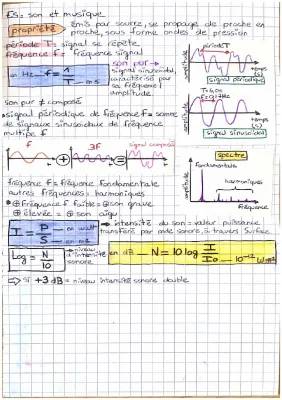 ES: son et musique
propriété
Émis par source, se propage de proche en proche, sous forme ondes de pression
période T: signal se répète
fréquence f = fréquence signal
en Hz — f = 1/T — en s
son pur → signal sinusoïdal, caractérisé par sa fréquence + amplitude
amplitude
période T
temps (s)
signal périodique
amplitude
temps (s)
signal sinusoïdal
son pur ≠ composé
• signal périodique de fréquence f = somme de signaux sinusoïdaux de fréquence multiple f
f
3f
signal composé
+
=
spectre
amplitude
fondamentale
harmoniques
fréquence
fréquence f = fréquence fondamentale
autres fréquences: harmoniques
fréquence f faible = son grave
élevée = son aigu
I = P/S — en watt — en m
→ intensité du son: valeur puissance transféré par onde sonore, à travers surface
Log = N/10
niveau d'intensité sonore
en dB — N = 10 log I/I0 — 10⁻¹²
⇒ si +3 dB = niveau intensité sonore double